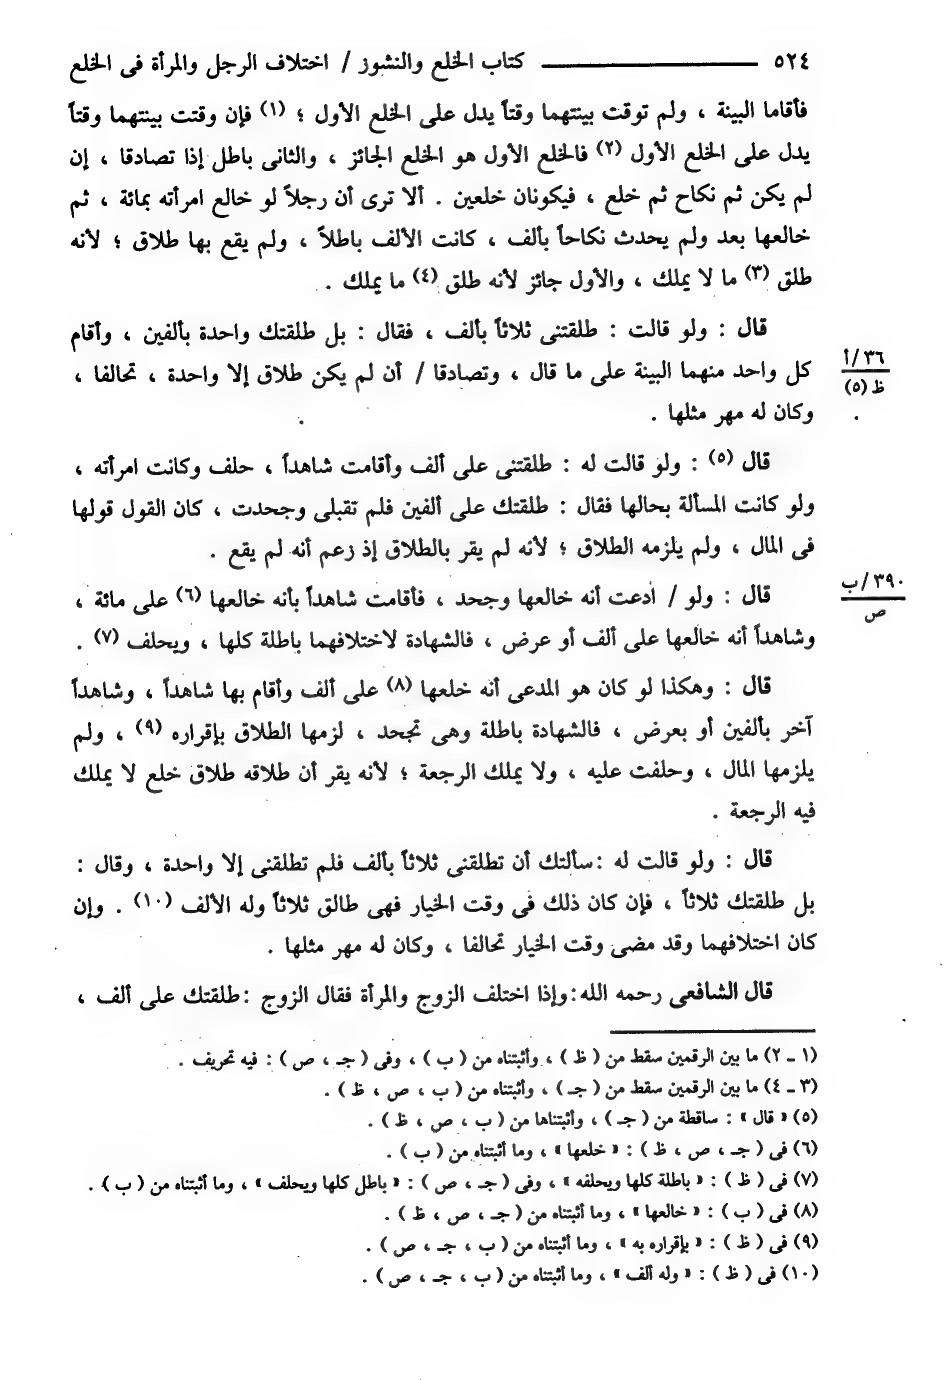 ٥٢٤ ــــــــــــــــ كتاب الخلع والنشوز / اختلاف الرجل والمرأة فى الخلع
فأقاما البينة ، ولم توقت بينتهما وقتاً يدل على الخلع الأول ؛ (١) فإن وقتت بينتهما وقتاً
يدل على الخلع الأول (٢) فالخلع الأول هو الخلع الجائز ، والثانى باطل إذا تصادقا ، إن
لم يكن ثم نكاح ثم خلع ، فيكونان خلعين . ألا ترى أن رجلاً لو خالع امرأته بمائة ، ثم
خالعها بعد ولم يحدث نكاحاً بألف ، كانت الألف باطلاً ، ولم يقع بها طلاق ؛ لأنه
طلق (٣) ما لا يملك ، والأول جائز لأنه طلق (٤) ما يملك .
قال : ولو قالت : طلقتنى ثلاثاً بألف ، فقال : بل طلقتك واحدة بألفين ، وأقام
كل واحد منهما البينة على ما قال ، وتصادقا / أن لم يكن طلاق إلا واحدة ، تحالفا ،
٣٦/أ
ظ (٥)
وكان له مهر مثلها .
قال (٥) : ولو قالت له : طلقتنى على ألف وأقامت شاهداً ، حلف وكانت امرأته ،
ولو كانت المسألة بحالها فقال : طلقتك على ألفين فلم تقبلى وجحدت ، كان القول قولها
فى المال ، ولم يلزمه الطلاق ؛ لأنه لم يقر بالطلاق إذ زعم أنه لم يقع .
قال : ولو / ادعت أنه خالعها وجحد ، فأقامت شاهداً بأنه خالعها (٦) على مائة ،
٣٩٠/ب
ص
وشاهداً أنه خالعها على ألف أو عرض ، فالشهادة لاختلافهما باطلة كلها ، ويحلف (٧) .
قال : وهكذا لو كان هو المدعى أنه خلعها (٨) على ألف وأقام بها شاهداً ، وشاهداً
آخر بألفين أو بعرض ، فالشهادة باطلة وهى تجحد ، لزمها الطلاق بإقراره (٩) ، ولم
يلزمها المال ، وحلفت عليه ، ولا يملك الرجعة ؛ لأنه يقر أن طلاقه طلاق خلع لا يملك
فيه الرجعة .
قال : ولو قالت له :سألتك أن تطلقنى ثلاثاً بألف فلم تطلقنى إلا واحدة ، وقال :
بل طلقتك ثلاثاً ، فإن كان ذلك فى وقت الخيار فهى طالق ثلاثاً وله الألف (١٠) . وإن
كان اختلافهما وقد مضى وقت الخيار تحالفا ، وكان له مهر مثلها .
قال الشافعى رحمه الله :وإذا اختلف الزوج والمرأة فقال الزوج :طلقتك على ألف ،
(١ ـ ٢) ما بين الرقمين سقط من ( ظ ) ، وأثبتناه من ( ب ) ، وفى ( جـ ، ص ) : فيه تحريف .
(٣ ـ ٤) ما بين الرقمين سقط من ( جـ ) ، وأثبتناه من ( ب ، ص ، ظ ) .
(٥) « قال » : ساقطة من ( جـ ) ، وأثبتناها من ( ب ، ص ، ظ ) .
(٦) فى ( جـ ، ص ، ظ ) : « خلعها » ، وما أثبتناه من ( ب ) .
(٧) فى ( ظ ) : « باطلة كلها ويحلفه » ، وفى ( جـ ، ص ) : « باطل كلها ويحلف » ، وما أثبتناه من ( ب ) .
(٨) فى ( ب ) : « خالعها » ، وما أثبتناه من ( جـ ، ص ، ظ ) .
(٩) فى ( ظ ) : « بإقراره به » ، وما أثبتناه من ( ب ، جـ ، ص ) .
(١٠) فى ( ظ ) : « وله ألف » ، وما أثبتناه من ( ب ، جـ ، ص ) .